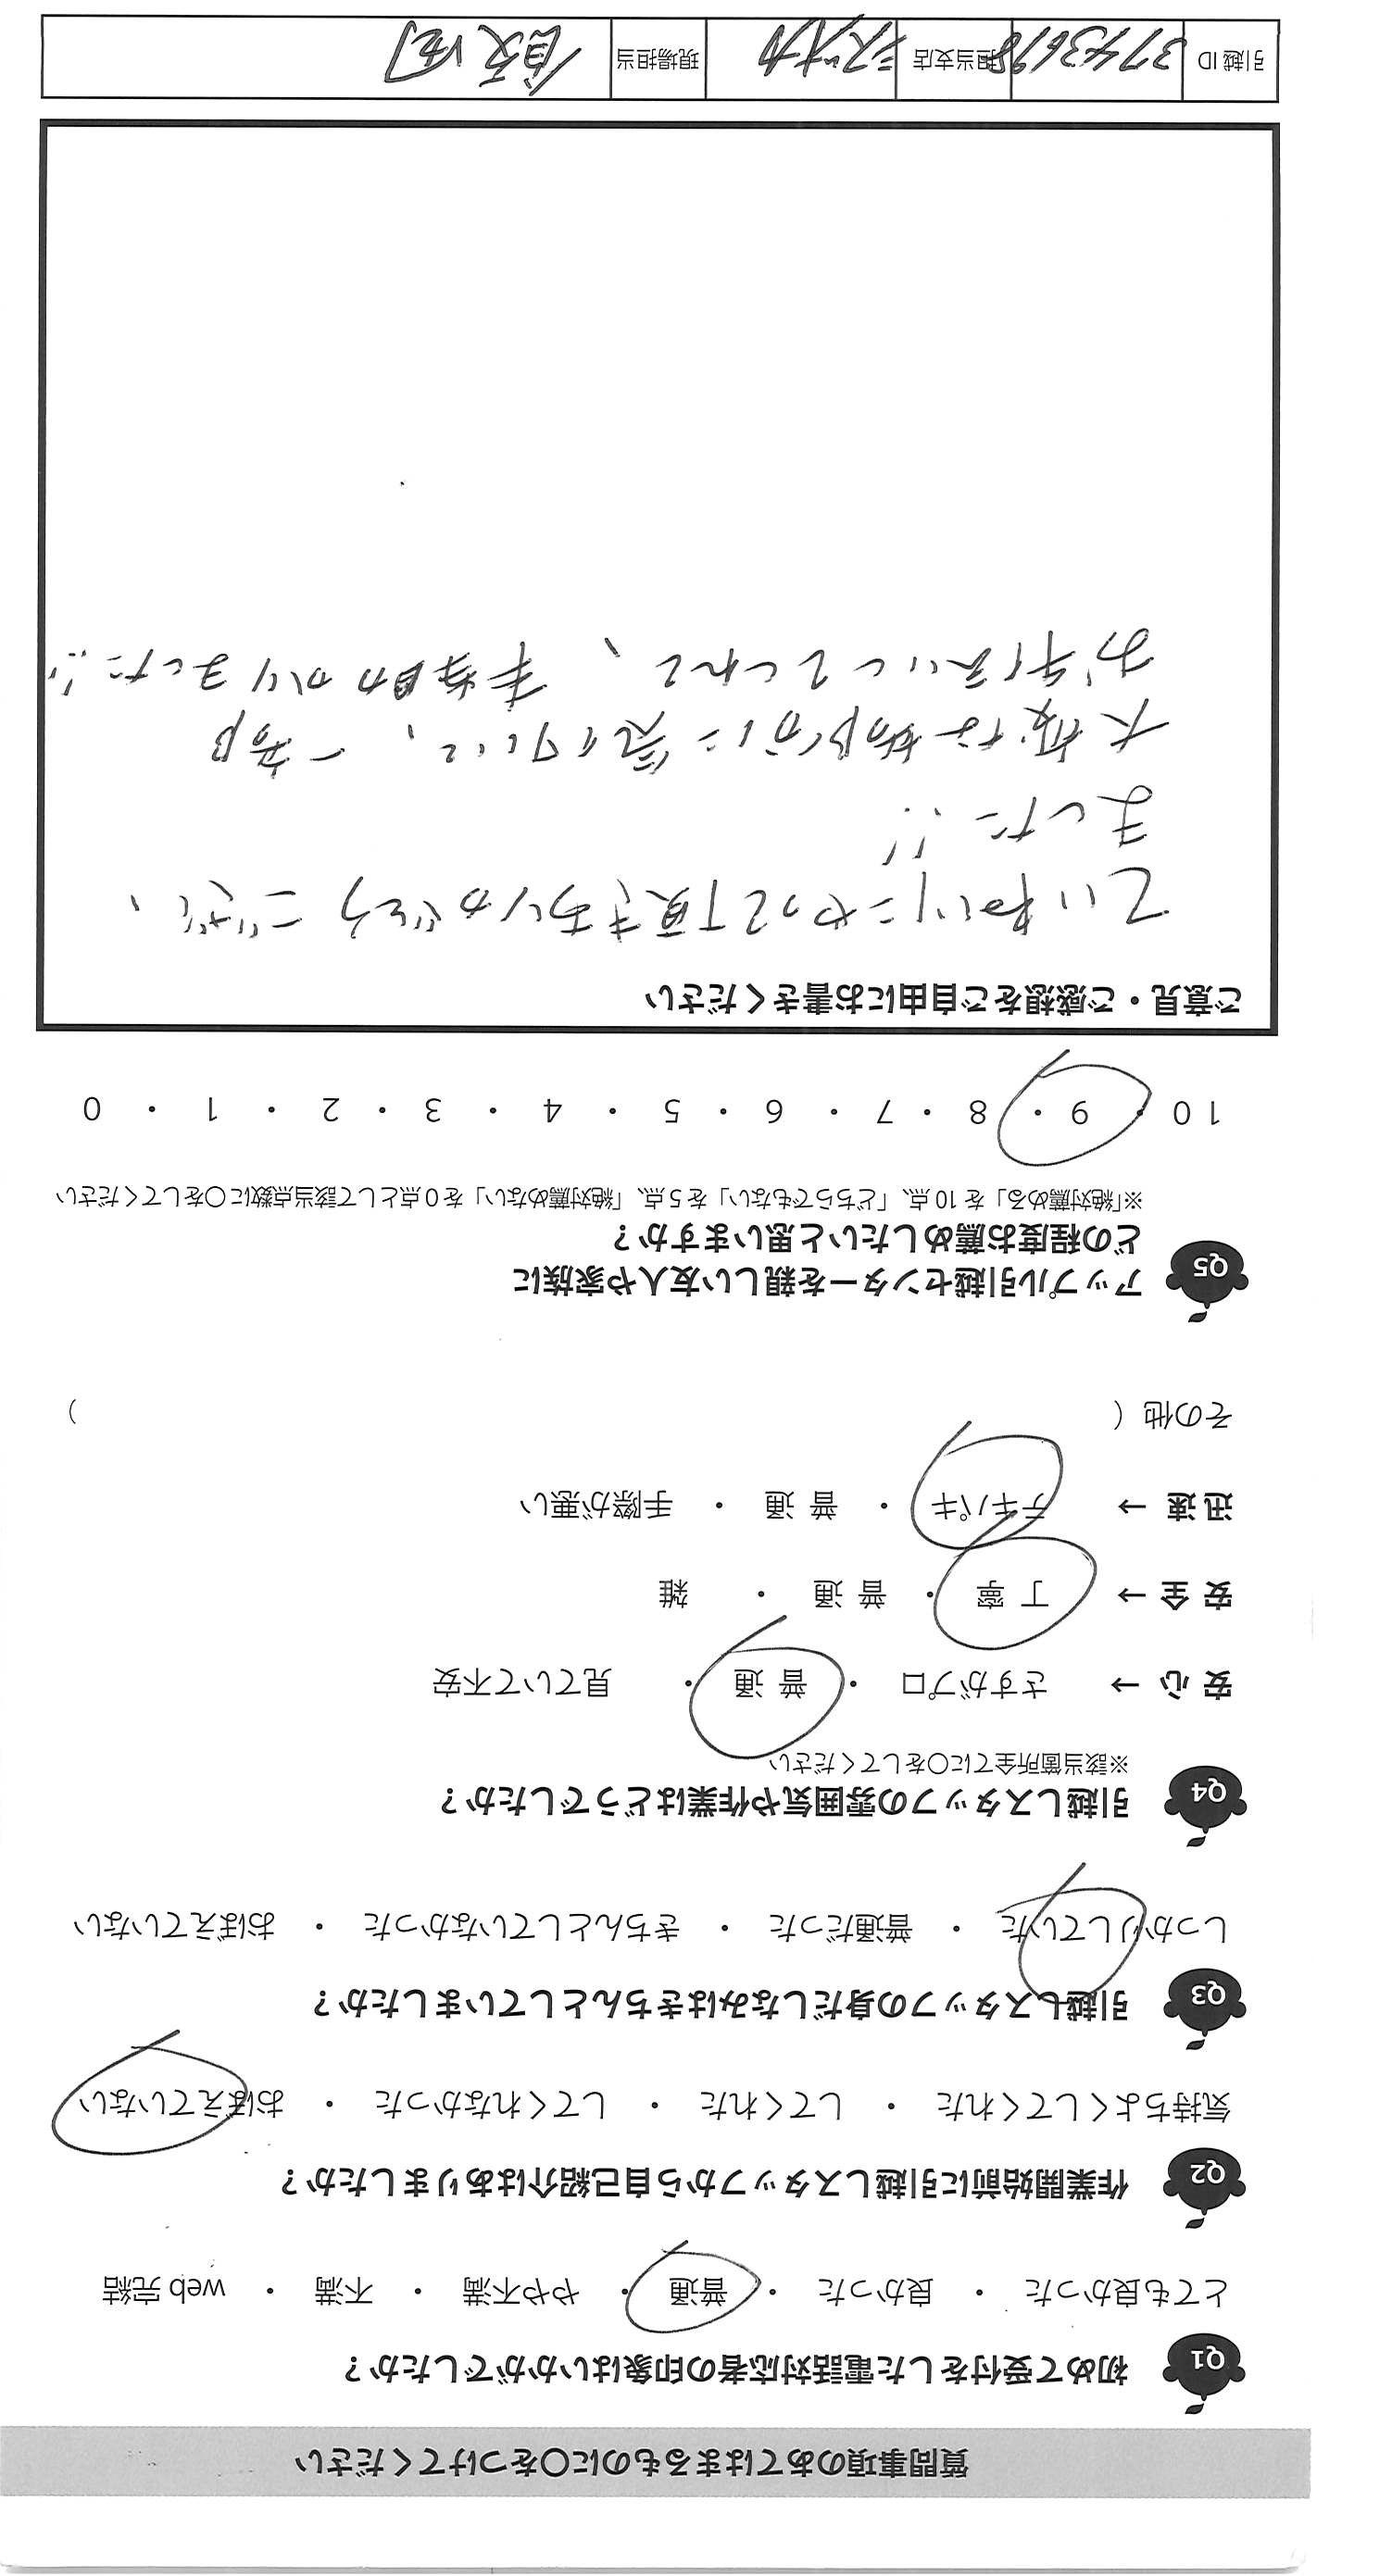 質問事項のあてはまるものに○をつけてください
Q1 初めて受付をした電話対応者の印象はいかがでしたか？
とても良かった ・ 良かった ・ 普通 ・ やや不満 ・ 不満 ・ web 完結
Q2 作業開始前に引越しスタッフから自己紹介はありましたか？
気持ちよくしてくれた ・ してくれた ・ してくれなかった ・ おぼえていない
Q3 引越しスタッフの身だしなみはきちんとしていましたか？
しっかりしていた ・ 普通だった ・ きちんとしていなかった ・ おぼえていない
Q4 引越しスタッフの雰囲気や作業はどうでしたか？
※該当箇所全てに○をしてください
安 心 → さすがプロ ・ 普 通 ・ 見ていて不安
安 全 → 丁 寧 ・ 普 通 ・ 雑
迅 速 → テキパキ ・ 普 通 ・ 手際が悪い
その他（ ）
Q5 アップル引越センターを親しい友人や家族に
どの程度お薦めしたいと思いますか？
※「絶対薦める」を 10 点、「どちらでもない」を 5 点、「絶対薦めない」を 0 点として該当点数に○をしてください
10 ・ 9 ・ 8 ・ 7 ・ 6 ・ 5 ・ 4 ・ 3 ・ 2 ・ 1 ・ 0
ご意見・ご感想をご自由にお書きください
ていねいにやって頂きありがとうござい
ました!!
大変な場所に気付いて、一部
お手伝いしてくれて、本当助かりました!!
引越 ID 3743698 担当支店 シズオカ 現場担当